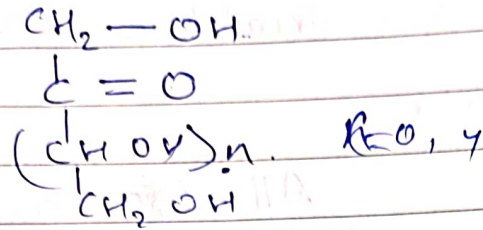 CH₂ — OH
C = O
(CH OH)n.
CH₂ OH